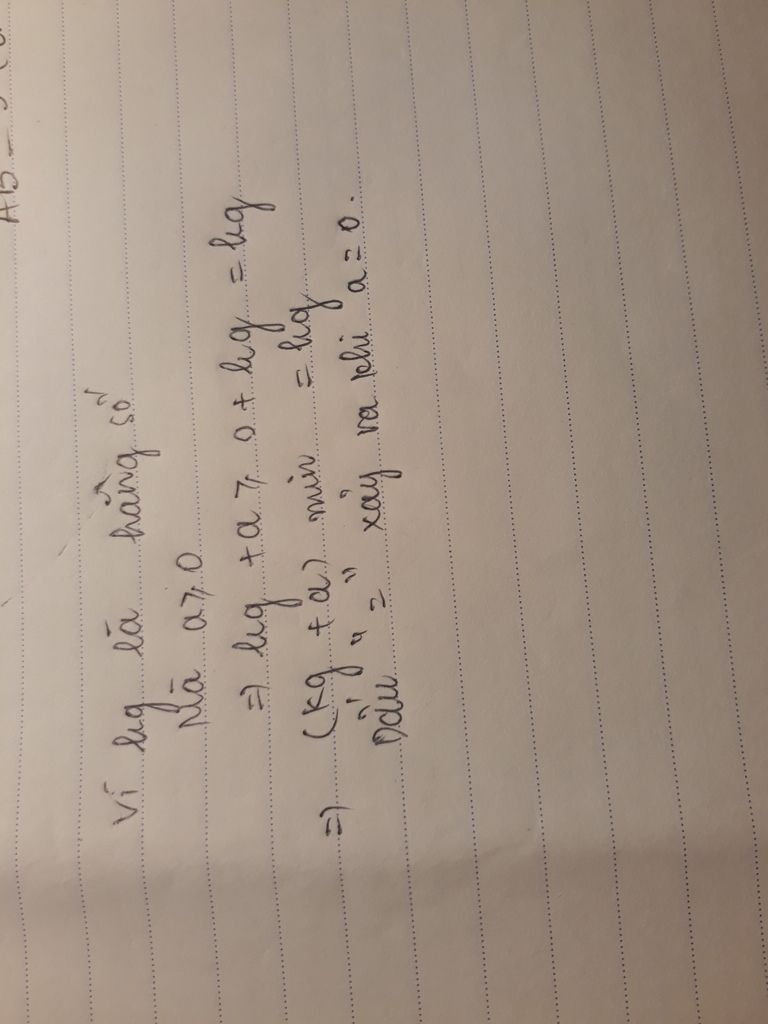 Vì kg là hằng số
Mà a ⩾ 0
=> kg + a ⩾ 0 + kg = kg
=> (kg + a) min = kg
Dấu "=" xảy ra khi a = 0.